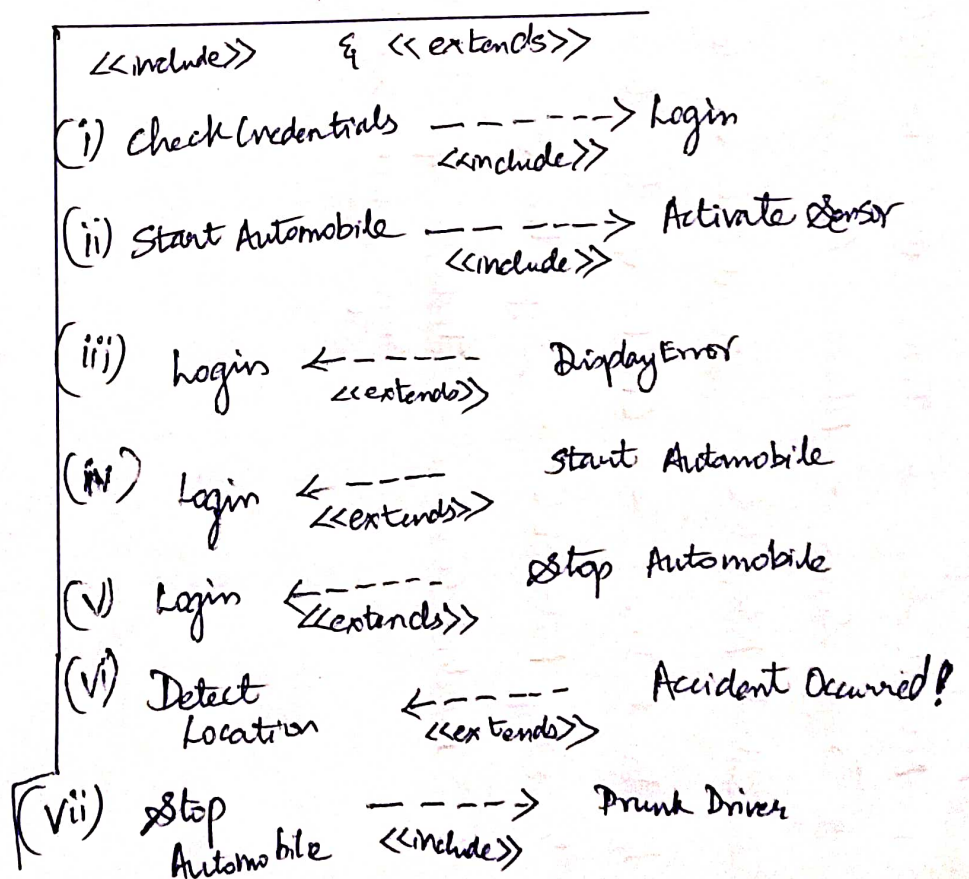 <<include>> & <<extends>>
(i) Check Credentials -----> Login
<<include>>
(ii) Start Automobile -----> Activate Sensor
<<include>>
(iii) Login <----- Display Error
<<extends>>
(iv) Login <---- Start Automobile
<<extends>>
(v) Login <----- Stop Automobile
<<extends>>
(vi) Detect Location <----- Accident Occurred!
<<extends>>
(vii) Stop Automobile ----> Drunk Driver
<<include>>